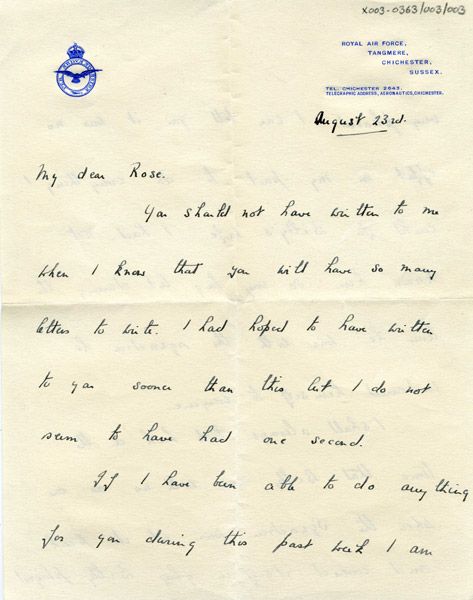 X003-0363/003/003
ROYAL AIR FORCE,
TANGMERE,
CHICHESTER,
SUSSEX.
TEL. CHICHESTER 2643.
TELEGRAPHIC ADDRESS, AERONAUTICS, CHICHESTER.
August 23rd.
My dear Rose.
You should not have written to me
when I know that you will have so many
letters to write. I had hoped to have written
to you sooner than this but I do not
seem to have had one second.
If I have been able to do anything
for you during this past week I am